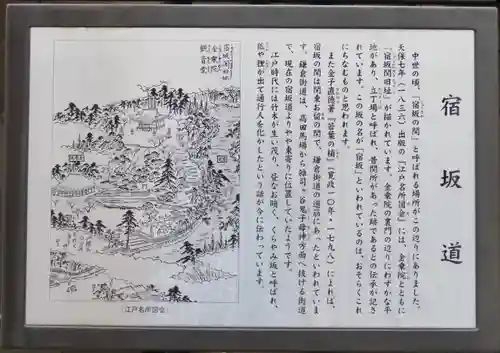 宿坂道
中世の頃、「宿坂の関」と呼ばれる場所がこの辺りにありました。
天保七年(一八三六)出版の『江戸名所図会』には、金乗院とともに
「宿坂関旧址」が描かれています。金乗院の裏門の辺りにわずかな平
地があり、立丁場と呼ばれ、昔関所があった跡であるとの伝承が記さ
れています。この坂の名が「宿坂」といわれているのは、おそらくこれ
にちなむものと思われます。
また金子直徳著『若葉の梢』(寛政一〇年・一七九八)によれば、
宿坂の関は関東お留の関で、鎌倉街道の道筋にあったといわれていま
す。鎌倉街道は、高田馬場から雑司ヶ谷鬼子母神方面へ抜ける街道
で、現在の宿坂道よりやや東寄りに位置していたようです。
江戸時代には竹木が生い茂り、昼なお暗く、くらやみ坂と呼ばれ、
狐や狸が出て通行人を化かしたという話が今に伝わっています。
宿坂関旧址
金乗院
観音堂
(江戸名所図会)